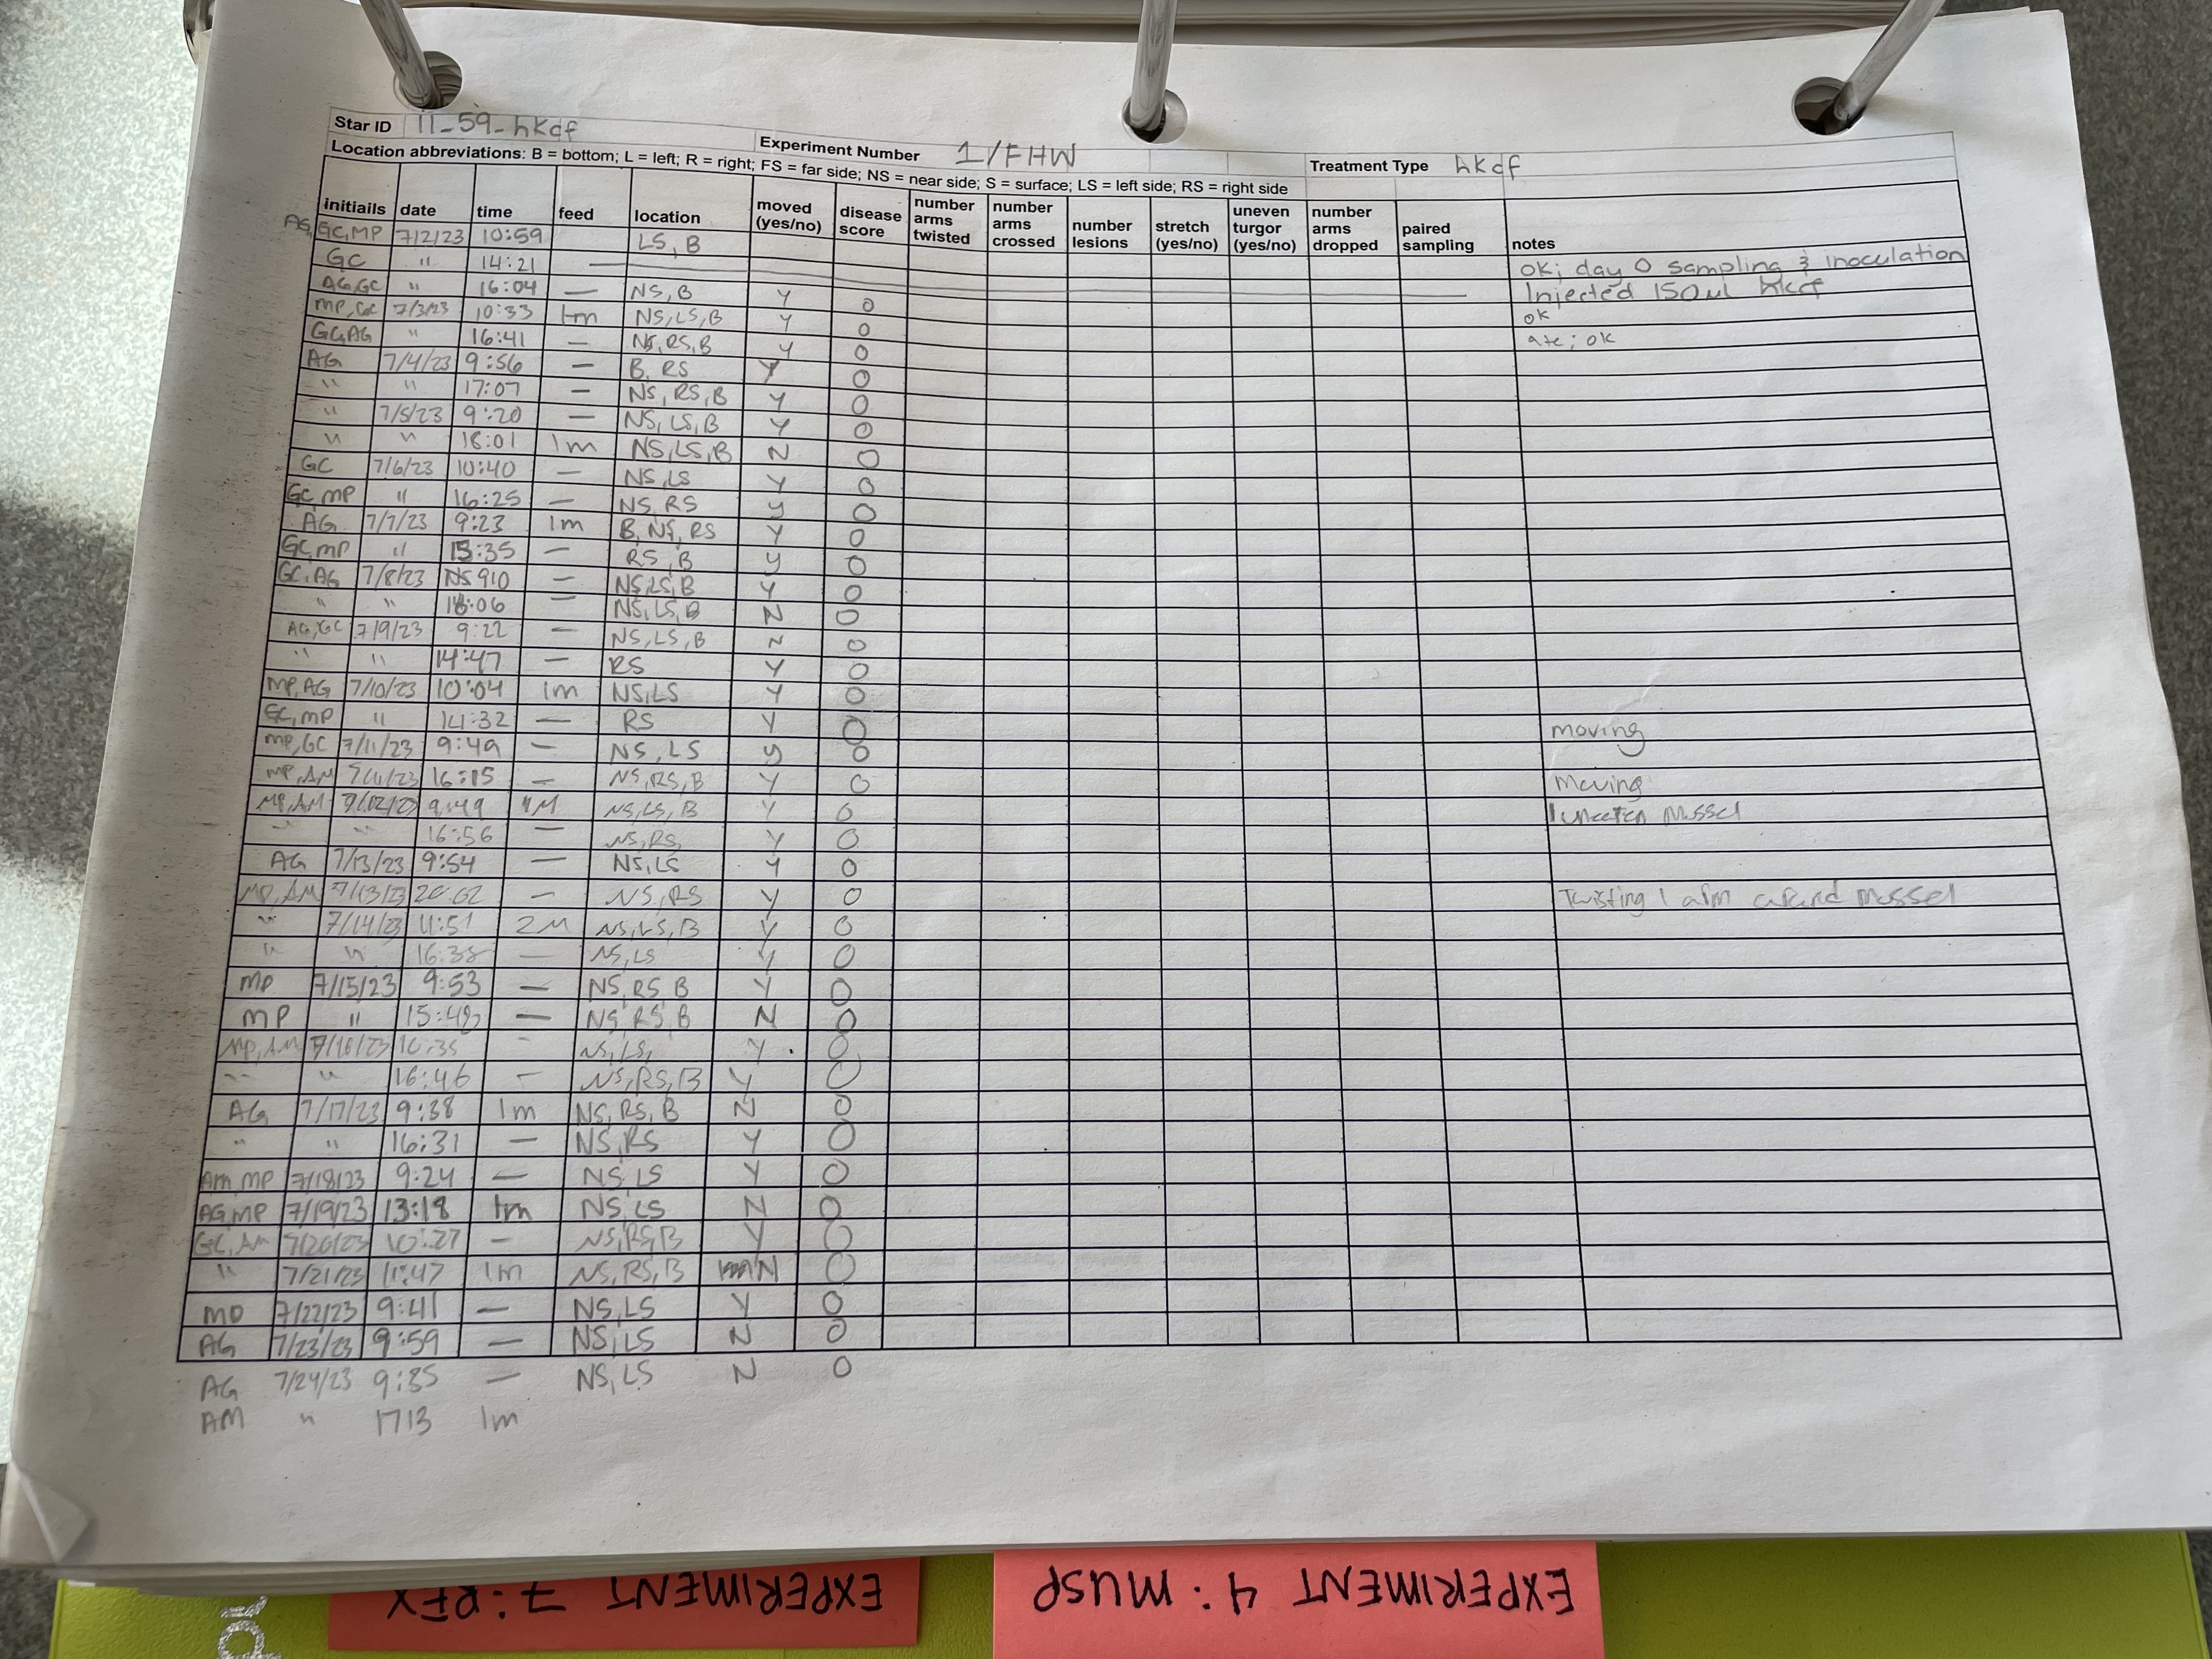 Star ID 11_59_hkcf Experiment Number 1/FHW Treatment Type hkcf
Location abbreviations: B = bottom; L = left; R = right; FS = far side; NS = near side; S = surface; LS = left side; RS = right side
initiails date time feed location moved (yes/no) disease score number arms twisted number arms crossed number lesions stretch (yes/no) uneven turgor (yes/no) number arms dropped paired sampling notes
AG, GC, MP 7/2/23 10:59 LS, B ok; day 0 sampling & inoculation
GC " 14:21 — Injected 150ul hkcf
AG, GC " 16:04 — NS, B Y 0 ok
MP, GC 7/3/23 10:33 1m NS, LS, B Y 0 ate; ok
GC, AG " 16:41 — NS, RS, B Y 0
AG 7/4/23 9:56 — B, RS Y 0
" " 17:07 — NS, RS, B Y 0
" 7/5/23 9:20 — NS, LS, B Y 0
" " 18:01 1m NS, LS, B N 0
GC 7/6/23 10:40 — NS, LS Y 0
GC, MP " 16:25 — NS, RS y 0
AG 7/7/23 9:23 1m B, NS, RS Y 0
GC, MP " 15:35 — RS, B y 0
GC, AG 7/8/23 NS 910 — NS, LS, B Y 0
" " :06 — NS, LS, B N 0
AG, GC 7/9/23 9:22 — NS, LS, B N 0
" " 14:47 — RS Y 0
MP, AG 7/10/23 10:04 1m NS, LS Y 0
GC, MP " 14:32 — RS Y 0 moving
MP, GC 7/11/23 9:49 — NS, LS y 0
MP, AM 7/11/23 16:15 — NS, RS, B Y 0 Moving
MP, AM 7/12/23 9:49 1M NS, LS, B Y 0 1 uneaten mussel
" " 16:56 — NS, RS, Y 0
AG 7/13/23 9:54 — NS, LS Y 0
MP, AM 7/13/23 — NS, RS Y 0 Twisting 1 arm around mussel
" 7/14/23 11:51 2M NS, LS, B Y 0
" " 16:38 — NS, LS Y 0
MP 7/15/23 9:53 — NS, RS, B Y 0
MP " 15:48 — NS, RS, B N 0
MP, AM 7/16/23 10:35 - NS, LS, Y 0
" " 16:46 — NS, RS, B Y 0
AG 7/17/23 9:38 1m NS, RS, B N 0
" " 16:31 — NS, RS Y 0
AM, MP 7/18/23 9:24 — NS, LS Y 0
AG, MP 7/19/23 13:18 1m NS, LS N 0
GC, AM 7/20/23 10:27 — NS, RS, B Y 0
" 7/21/23 11:47 1m NS, RS, B N 0
MP 7/22/23 9:41 — NS, LS Y 0
AG 7/23/23 9:59 — NS, LS N 0
AG 7/24/23 9:35 — NS, LS N 0
AM " 1713 1m
EXPERIMENT 7: RFX
EXPERIMENT 4: MUSP